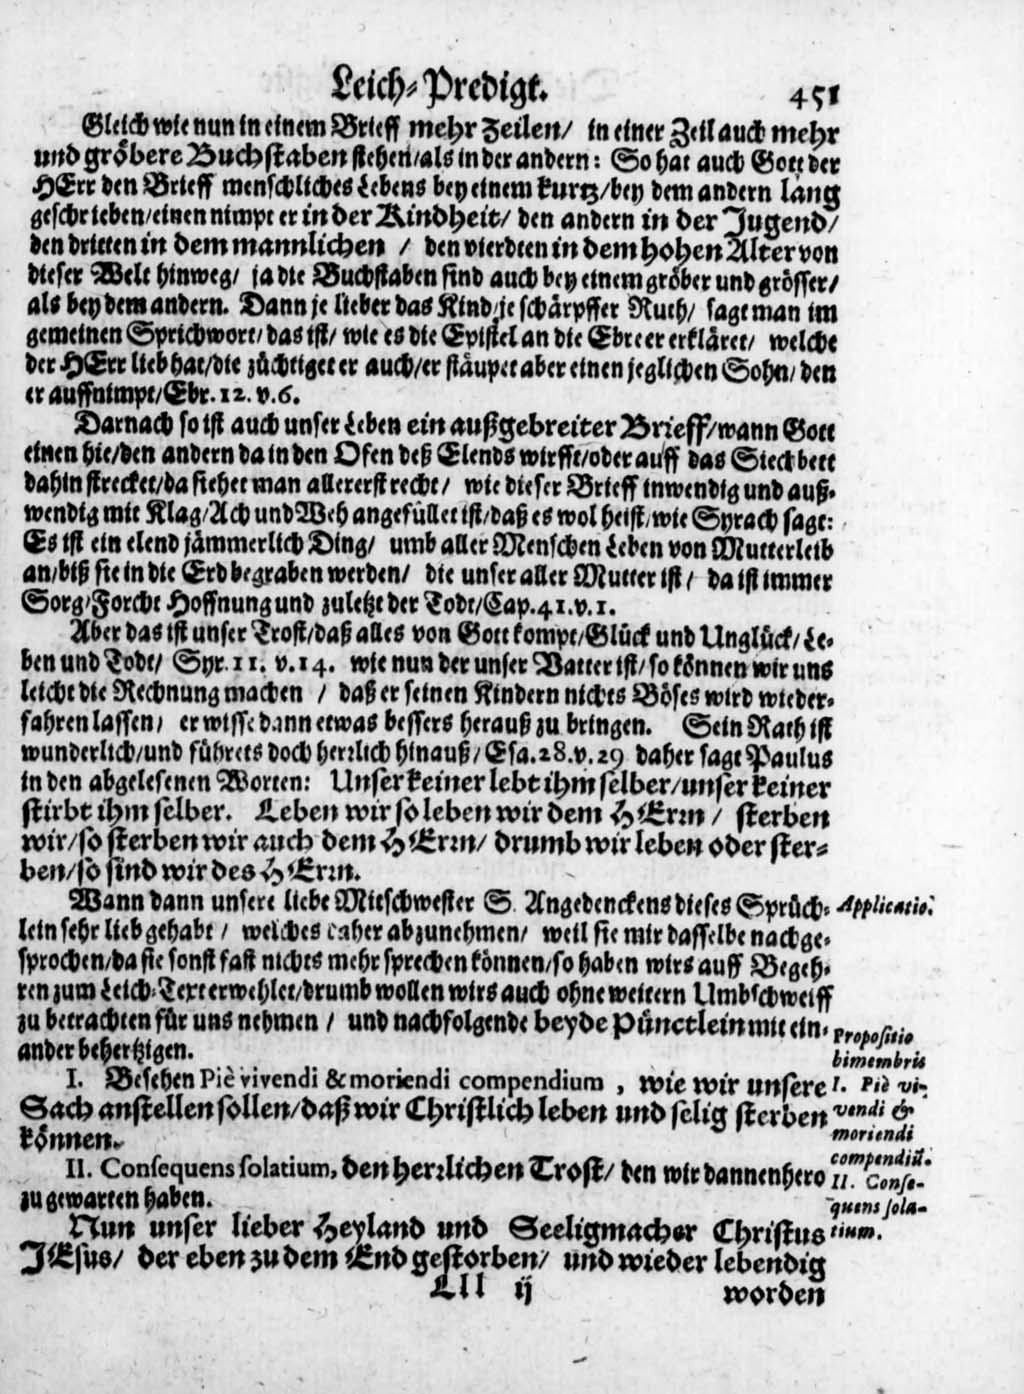 Leich-Predigt. 451
Gleich wie nun in einem Brieff mehr Zeilen/ in einer Zeil auch mehr
und gröbere Buchstaben stehen/als in der andern: So hat auch Gott der
HErr den Brieff menschliches Lebens bey einem kurtz/bey dem andern lang
geschrieben/einen nimpt er in der Kindheit/ den andern in der Jugend/
den dritten in dem mannlichen / den vierdten in dem hohen Alter von
dieser Welt hinweg/ ja die Buchstaben sind auch bey einem gröber und grösser/
als bey dem andern. Dann je lieber das Kind/je schärpffer Ruth/ sagt man im
gemeinen Sprichwort/das ist/ wie es die Epistel an die Ebreer erkläret/ welche
der HErr lieb hat/die züchtiget er auch/er stäupet aber einen jeglichen Sohn/den
er auffnimpt/Ebr. 12. v. 6.
Darnach so ist auch unser Leben ein außgebreiter Brieff/wann Gott
einen hie/den andern da in den Ofen deß Elends wirfft/oder auff das Siechbett
dahin strecket/da siehet man allererst recht/ wie dieser Brieff inwendig und auß-
wendig mit Klag/Ach und Weh angefüllet ist/daß es wol heist/wie Syrach sagt:
Es ist ein elend jämmerlich Ding/ umb aller Menschen Leben von Mutterleib
an/biß sie in die Erd begraben werden/ die unser aller Mutter ist/ da ist immer
Sorg/Forcht Hoffnung und zuletzt der Todt/Cap. 41. v. 1.
Aber das ist unser Trost/daß alles von Gott kompt/Glück und Unglück/Le-
ben und Todt/ Syr. 11. v. 14. wie nun der unser Vatter ist/so können wir uns
leicht die Rechnung machen / daß er seinen Kindern nichts Böses wird wieder-
fahren lassen/ er wisse dann etwas bessers herauß zu bringen. Sein Rath ist
wunderlich/und führets doch herzlich hinauß/Esa. 28. v. 29 daher sagt Paulus
in den abgelesenen Worten: Unser keiner lebt ihm selber/unser keiner
stirbt ihm selber. Leben wir so leben wir dem HErrn / sterben
wir/so sterben wir auch dem HErrn/ drumb wir leben oder ster-
ben/so sind wir des HErrn.
Wann dann unsere liebe Mitschwester S. Angedenckens dieses Sprüch- Applicatio.
lein sehr lieb gehabt / welches daher abzunehmen/ weil sie mir dasselbe nachge-
sprochen/da sie sonst fast nichts mehr sprechen können/so haben wirs auff Begeh-
ren zum Leich-Text erwehlet/drumb wollen wirs auch ohne weitern Umbschweiff
zu betrachten für uns nehmen / und nachfolgende beyde Pünctlein mit ein- Propositio
ander behertzigen. bimembris
I. Besehen Piè vivendi & moriendi compendium , wie wir unsere I. Piè vi-
Sach anstellen sollen/daß wir Christlich leben und selig sterben vendi &
können. moriendi
compendiũ.
II. Consequens solatium, den herzlichen Trost/ den wir dannenhero II. Conse-
zu gewarten haben. quens sola-
Nun unser lieber Heyland und Seeligmacher Christus tium.
JEsus/ der eben zu dem End gestorben/ und wieder lebendig
Lll ij worden